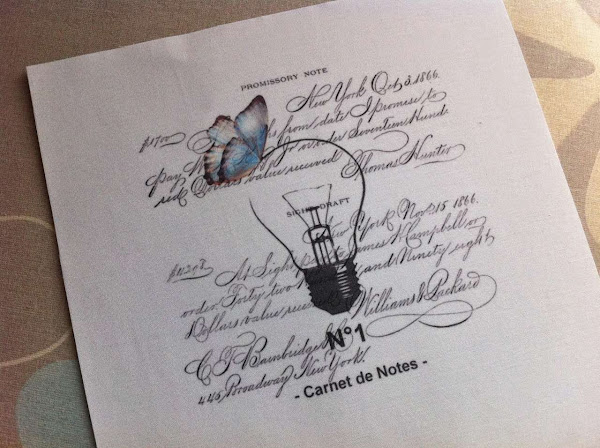 PROMISSORY NOTE
New York Oct 3. 1866.
$1700
s from date I promise to
pay
or order Seventeen Hund-
red Dollars value received
Thomas Hunter
SIGHT DRAFT
New York Nov. 15 1866.
At Sight
James W. Campbell, or
order, Forty two
and Ninety eight
Dollars value
Williams & Packard
C. T. Bainbridge
445 Broadway New York.
N°1
- Carnet de Notes -